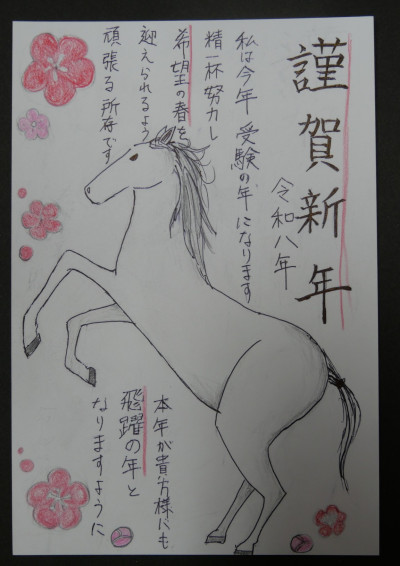 謹賀新年
令和八年
私は今年受験の年になります
精一杯努力し
希望の春を
迎えられるよう
頑張る所存です
本年が貴方様にも
飛躍の年と
なりますように